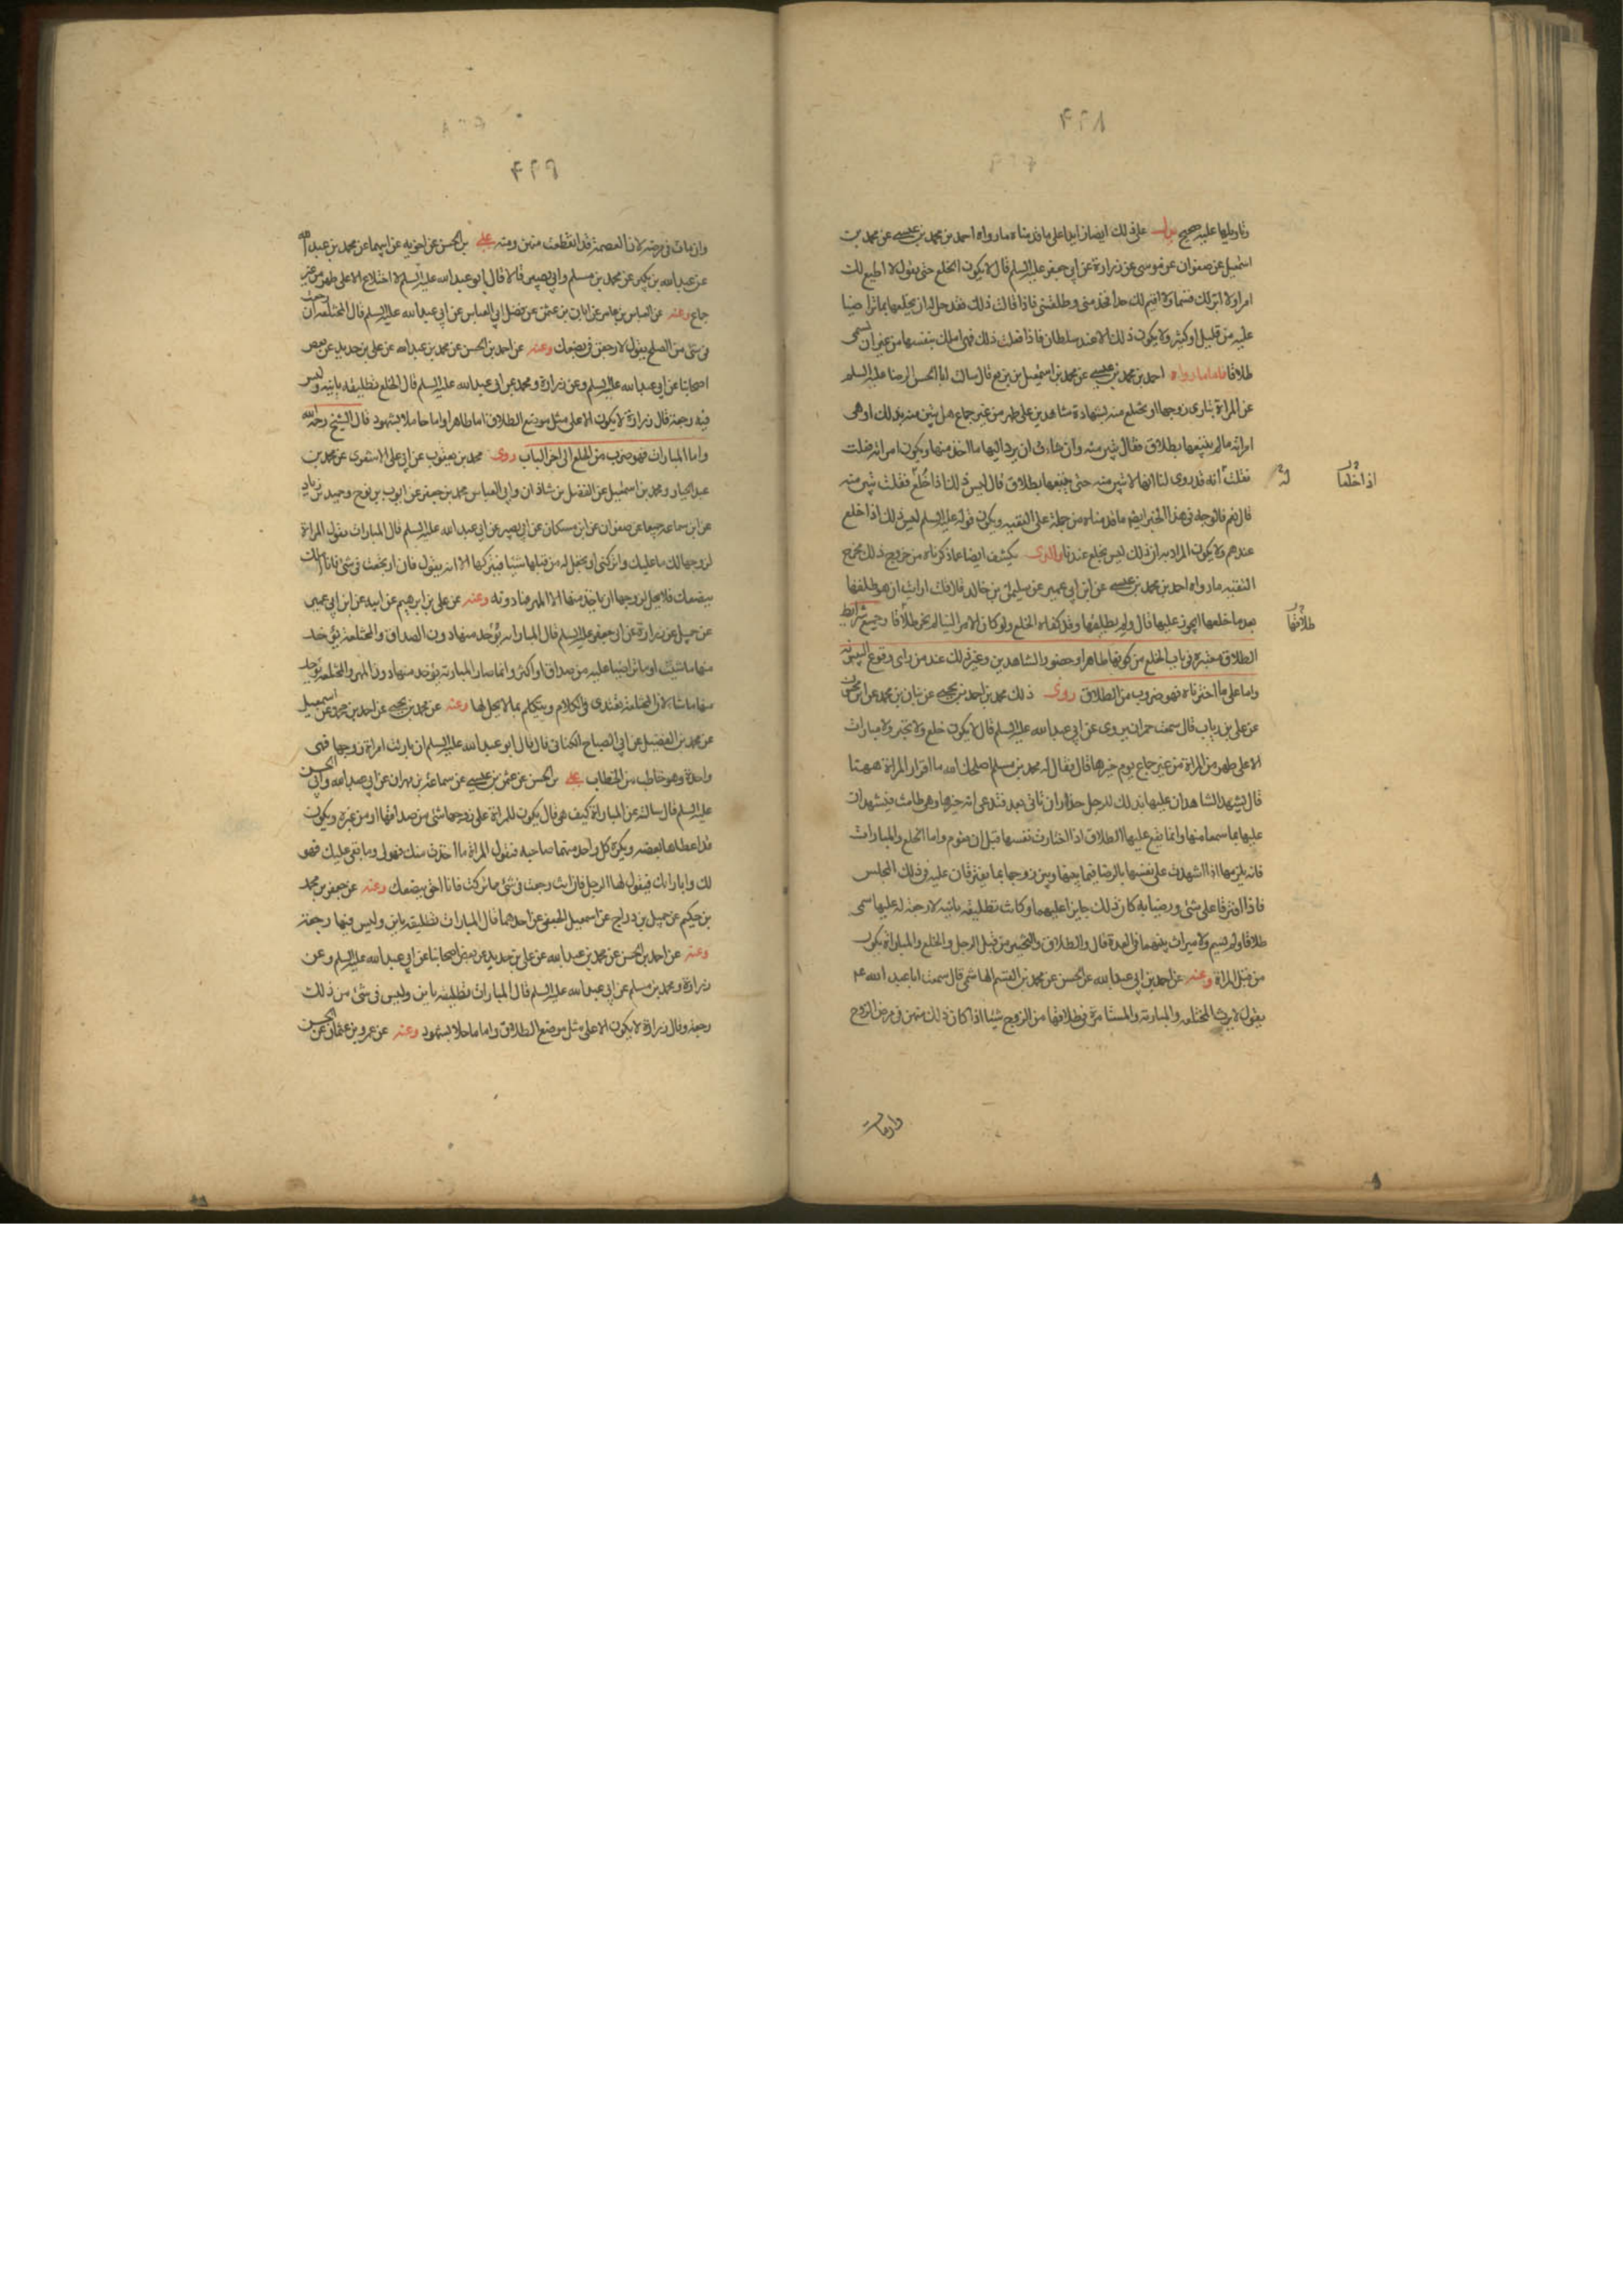 وتاويلها عليه صحيح يدل على ذلك ايضا زايدا على ما قدمناه ما رواه احمد بن محمد بن عيسى عن محمد بن
اسمعيل عن صفوان عن موسى عن زرارة عن ابي جعفر عليه السلم قال لا يكون الخلع حتى يقول لا اطيع لك
امرا ولا ابر لك قسما ولا اقيم لك حدا فخذ مني وطلقني فاذا قالت ذلك فقد حل له ان يخلعها بما تراضيا
عليه من قليل او كثير ولا يكون ذلك الا عند سلطان فاذا فعلت ذلك فهي املك بنفسها من غير ان يسمى
طلاقا فاما ما رواه احمد بن محمد بن عيسى عن محمد بن اسمعيل بن بزيع قال سالت ابا الحسن الرضا عليه السلم
عن المراة تبارى زوجها او تختلع منه بشهادة شاهدين على طهر من غير جماع هل تبين منه بذلك او هى
امراته ما لم يتبعها بطلاق فقال تبين منه وان شاءت ان يرد اليها ما اخذ منها ويكون امراته فعلت
فقلت انه قد روى لنا انها لا تبين منه حتى يتبعها بطلاق قال ليس ذلك اذا خلع فقلت تبين منه
قال نعم فالوجه في هذا الخبر ايضا ما قدمناه من حمله على التقيه ويكون قوله عليه السلم ليس ذلك اذا خلع
عندهم ولا يكون المراد به ان ذلك ليس بخلع عندنا والذى يكشف ايضا عما ذكرناه من خروج ذلك مخرج
التقيه ما رواه احمد بن محمد بن عيسى عن ابن ابي عمير عن سليمن بن خالد قال قلت ارايت ان هو طلقها
بعد ما خلعها ايجوز عليها قال ولم يطلقها وقد كفاه الخلع ولو كان الامر الينا لم نجز طلاقا وجميع شرائط
الطلاق معتبره في باب الخلع من كونها طاهرا وحضور الشاهدين وغير ذلك عند من راى وقوع البينونه
واما على ما اخترناه فهو ضروب من الطلاق روى ذلك محمد بن احمد بن يحيى عن بنان بن محمد عن ابن محبوب
عن على بن رياب قال سمعت حمران يروى عن ابي عبد الله عليه السلم قال لا يكون خلع ولا تخير ولا مبارات
الا على طهر من المراة من غير جماع يوم خيرها قال فقال له محمد بن مسلم اصلحك الله ما اقرار المراة ههنا
قال يشهد الشاهدان عليها بذلك للرجل حذار ان تاتى بعد فتدعى انه خيرها وهى طامث فيشهدان
عليها بما سمعا منها وانما يقع عليها الطلاق اذا اختارت نفسها قبل ان تقوم واما الخلع والمبارات
فانه يلزمها اذا اشهدت على نفسها بالرضا فيما بينها وبين زوجها بما يفترقان عليه في ذلك المجلس
فاذا افترقا على شى ورضيا به كان ذلك جايزا عليهما وكانت تطليقه باينه لا رجعة له عليها سمى
طلاقا او لم يسم ولا ميراث بينهما في العدة قال والطلاق والتخيير من قبل الرجل والخلع والمباراة يكون
من قبل المراة وعنه عن احمد بن ابي عبد الله عن الحسن عن محمد بن القسم الهاشمى قال سمعت ابا عبد الله ع
يقول لا يرث المختلعه والمبارئه والمستامرة في طلاقها من الزوج شيئا اذا كان ذلك منهن في مرض الزوج
اذا خلعها
طلاقها
وان مات
٤٩٩
وان مات في مرضه لان العصمة قد انقطعت منهن ومنه على بن الحسن عن اخويه عن ابيهما عن محمد بن عبد الله
عن عبد الله بن بكير عن محمد بن مسلم وابي بصير قالا قال ابو عبد الله عليه السلم لا اختلاع الا على طهر من غير
جماع وعنه عن العباس بن عامر عن ابان بن عثمن عن فضل ابي العباس عن ابي عبد الله عليه السلم قال المختلعة ان رجعت
في شى من الصلح يقول لارجعن في بضعك وعنه عن احمد بن الحسن عن محمد بن عبد الله عن على بن حديد عن بعض
اصحابنا عن ابي عبد الله عليه السلم وعن زرارة ومحمد عن ابي عبد الله عليه السلم قال الخلع تطليقه باينه وليس
فيه رجعة قال زرارة لا يكون الا على مثل موضع الطلاق اما طاهرا واما حاملا بشهود قال الشيخ رحمه الله
واما المبارات فهو ضرب من الخلع الى اخر الباب روى محمد بن يعقوب عن ابي على الاشعرى عن محمد بن
عبد الجبار ومحمد بن اسمعيل عن الفضل بن شاذان وابي العباس محمد بن جعفر عن ايوب بن نوح وحميد بن زياد
عن ابن سماعه جميعا عن صفوان عن ابن مسكان عن ابي بصير عن ابي عبد الله عليه السلم قال المبارات يقول المراة
لزوجها لك ما عليك واتركنى او يجعل له من قبلها شيئا فيتركها الا انه يقول فان ارتجعت في شى فانا املك
ببضعك فلا يحل لزوجها ان ياخذ منها الا المهر فما دونه وعنه عن على بن ابرهيم عن ابيه عن ابن ابي عمير
عن جميل عن زرارة عن ابي جعفر عليه السلم قال المباراه يؤخذ منها دون الصداق والمختلعة يؤخذ
منها ما شئت او ما تراضيا عليه من صداق او اكثر وانما صار المبارئه يؤخذ منها دون المهر والمختلعه يؤخذ
منها ما شاء لان المختلعة تعتدى في الكلام ويتكلم بما لا يحل لها وعنه عن محمد بن يحيى عن احمد بن محمد عن اسمعيل
عن محمد بن الفضيل عن ابي الصباح الكناني قال قال ابو عبد الله عليه السلم ان بارئت امراة زوجها فهى
واحدة وهو خاطب من الخطاب على بن الحسن عن عثمن بن عيسى عن سماعة بن مهران عن ابي عبد الله وابي الحسن
عليه السلم قال سالته عن المباراة كيف هى قال يكون للمراة على زوجها شى من صداقها او من غيره ويكون
قد اعطاها بعضه ويكره كل واحد منهما صاحبه فيقول المراة ما اخذت منك فهو لى وما بقى عليك فهو
لك وابارئك فيقول لها الرجل فان انت رجعت في شى مما تركت فانا احق ببضعك وعنه عن جعفر بن محمد
بن حكيم عن جميل بن دراج عن اسمعيل الجعفى عن احدهما قال المبارات تطليقه باين وليس فيها رجعة
وعنه عن احمد بن الحسن عن محمد بن عبد الله عن على بن حديد عن بعض اصحابنا عن ابي عبد الله عليه السلم وعن
زرارة ومحمد بن مسلم عن ابي عبد الله عليه السلم قال المبارات تطليقه باين وليس في شى من ذلك
رجعة وقال زرارة لا يكون الا على مثل موضع الطلاق واما حاملا بشهود وعنه عن عمرو بن عثمان عن الحسن